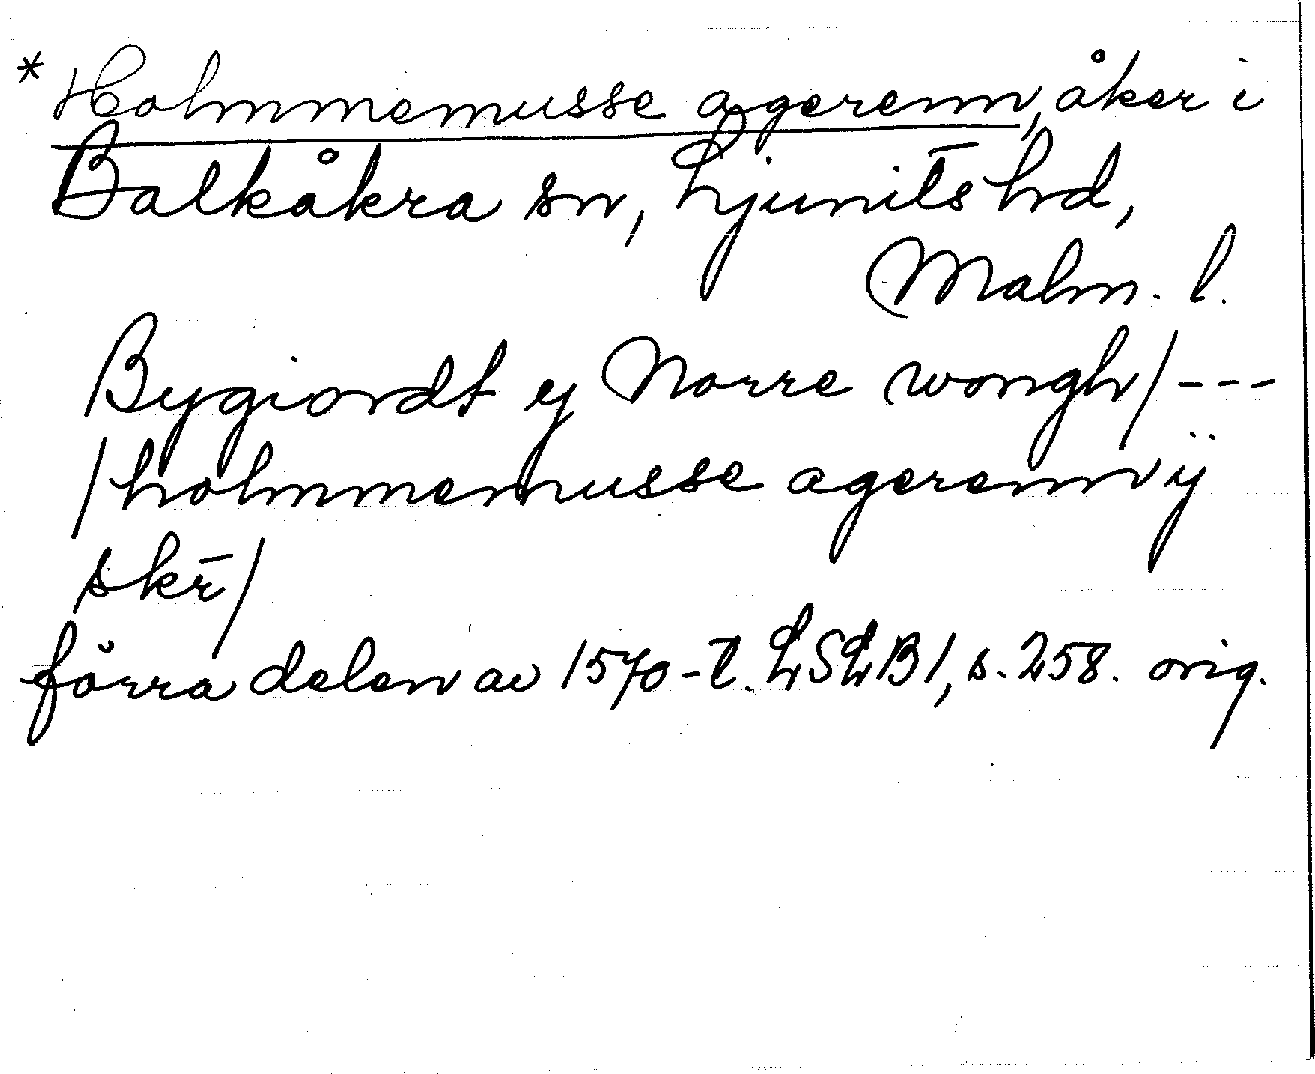 *Holmmemusse agerenn, åker i
Balkåkra sn, Ljunits hd,
Malm. l.
Bygiordt y Norre wongh/---
/holmmemusse agerenn ÿ
skr̄/
förra delen av 1570-t. LSLB1, s. 258. orig.